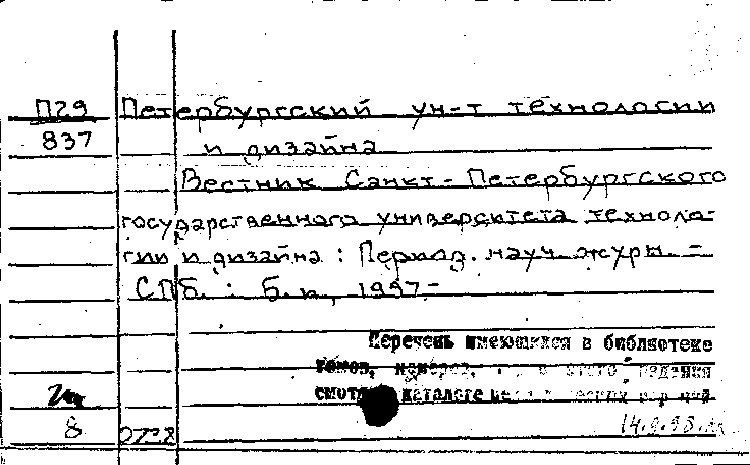 П29 Петербургский ун-т технологии
837 и дизайна
Вестник Санкт-Петербургского
государственного университета техноло-
гии и дизайна : Период. науч. журн. -
СПб. : б. и., 1997-
Перечень имеющихся в библиотеке
томов, номеров, издания
смотри каталоге
8